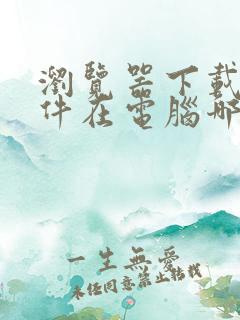 瀏覽器下載
件在電腦哪
一生無愛
未经同意禁止转载